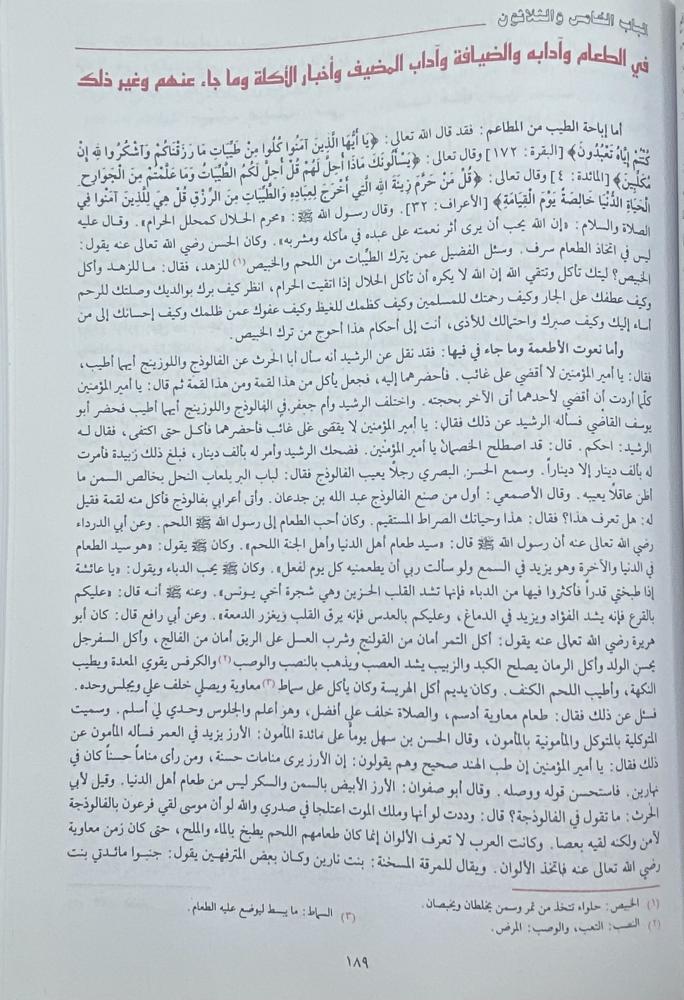 الباب الخامس والثلاثون
في الطعام وآدابه والضيافة وآداب المضيف وأخبار الأكلة وما جاء عنهم وغير ذلك
أما إباحة الطيب من المطاعم: فقد قال الله تعالى: ﴿يَا أَيُّهَا الَّذِينَ آمَنُوا كُلُوا مِنْ طَيِّبَاتِ مَا رَزَقْنَاكُمْ وَآشْكُرُوا لله إِنْ
كُنْتُمْ إِيَّاهُ تَعْبُدُونَ﴾ [البقرة: ١٧٢] وقال تعالى: ﴿يَسْأَلُونَكَ مَاذَا أُحِلَّ لَهُمْ قُلْ أُحِلَّ لَكُمُ الطَّيِّبَاتُ وَمَا عَلَّمْتُمْ مِنَ الْجَوَارِحِ
مُكَلِّبِينَ﴾ [المائدة: ٤] وقال تعالى: ﴿قُلْ مَنْ حَرَّمَ زِينَةَ اللهِ الَّتِي أَخْرَجَ لِعِبَادِهِ وَالطَّيِّبَاتِ مِنَ الرِّزْقِ قُلْ هِيَ لِلَّذِينَ آمَنُوا فِي
الْحَيَاةِ الدُّنْيَا خَالِصَةً يَوْمَ الْقِيَامَةِ﴾ [الأعراف: ٣٢]. وقال رسول الله ﷺ: «محرم الحلال كمحلل الحرام». وقال عليه
الصلاة والسلام: «إن الله يحب أن يرى أثر نعمته على عبده في مأكله ومشربه». وكان الحسن رضي الله تعالى عنه يقول:
ليس في اتخاذ الطعام سرف. وسئل الفضيل عمن يترك الطيّبات من اللحم والخبيص(١) للزهد، فقال: ما للزهد وأكل
الخبيص؟ ليتك تأكل وتتقي الله إن الله لا يكره أن تأكل الحلال إذا اتقيت الحرام، انظر كيف برك بوالديك وصلتك للرحم
وكيف عطفك على الجار وكيف رحمتك للمسلمين وكيف كظمك للغيظ وكيف عفوك عمن ظلمك وكيف إحسانك إلى من
أساء إليك وكيف صبرك واحتمالك للأذى، أنت إلى أحكام هذا أحوج من ترك الخبيص.
وأما نعوت الأطعمة وما جاء في فيها: فقد نقل عن الرشيد أنه سأل أبا الحرث عن الفالوذج واللوزينج أيهما أطيب،
فقال: يا أمير المؤمنين لا أقضي على غائب. فأحضرهما إليه، فجعل يأكل من هذا لقمة ومن هذا لقمة ثم قال: يا أمير المؤمنين
كلّما أردت أن أقضي لأحدهما أتى الآخر بحجته. واختلف الرشيد وأم جعفر في الفالوذج واللوزينج أيهما أطيب فحضر أبو
يوسف القاضي فسأله الرشيد عن ذلك فقال: يا أمير المؤمنين لا يقضى على غائب فأحضرهما فأكل حتى اكتفى، فقال له
الرشيد: احكم. قال: قد اصطلح الخصمان يا أمير المؤمنين. فضحك الرشيد وأمر له بألف دينار، فبلغ ذلك زبيدة فأمرت
له بألف دينار إلا ديناراً. وسمع الحسن البصري رجلاً يعيب الفالوذج فقال: لباب البر بلعاب النحل بخالص السمن ما
أظن عاقلاً يعيبه. وقال الأصمعي: أول من صنع الفالوذج عبد الله بن جدعان. وأتى أعرابي بفالوذج فأكل منه لقمة فقيل
له: هل تعرف هذا؟ فقال: هذا وحياتك الصراط المستقيم. وكان أحب الطعام إلى رسول الله ﷺ اللحم. وعن أبي الدرداء
رضي الله تعالى عنه أن رسول الله ﷺ قال: «سيد طعام أهل الدنيا وأهل الجنة اللحم». وكان ﷺ يقول: «هو سيد الطعام
في الدنيا والآخرة وهو يزيد في السمع ولو سألت ربي أن يطعمنيه كل يوم لفعل». وكان ﷺ يحب الدباء ويقول: «يا عائشة
إذا طبختي قدراً فأكثروا فيها من الدباء فإنها تشد القلب الحزين وهي شجرة أخي يونس». وعنه ﷺ أنه قال: «عليكم
بالقرع فإنه يشد الفؤاد ويزيد في الدماغ، وعليكم بالعدس فإنه يرق القلب ويغزر الدمعة». وعن أبي رافع قال: كان أبو
هريرة رضي الله تعالى عنه يقول: أكل التمر أمان من القولنج وشرب العسل على الريق أمان من الفالج، وأكل السفرجل
يحسن الولد وأكل الرمان يصلح الكبد والزبيب يشد العصب ويذهب بالنصب والوصب(٢) والكرفس يقوي المعدة ويطيب
النكهة، وأطيب اللحم الكتف. وكان يديم أكل الهريسة وكان يأكل على سماط(٣) معاوية ويصلي خلف علي ويجلس وحده.
فسئل عن ذلك فقال: طعام معاوية أدسم، والصلاة خلف علي أفضل، وهو أعلم والجلوس وحدي لي أسلم. وسميت
المتوكلية بالمتوكل والمأمونية بالمأمون، وقال الحسن بن سهل يوماً على مائدة المأمون: الأرز يزيد في العمر فسأله المأمون عن
ذلك فقال: يا أمير المؤمنين إن طب الهند صحيح وهم يقولون: إن الأرز يرى منامات حسنة، ومن رأى مناماً حسناً كان في
نهارين. فاستحسن قوله ووصله. وقال أبو صفوان: الأرز الأبيض بالسمن والسكر ليس من طعام أهل الدنيا. وقيل لأبي
الحرث: ما تقول في الفالوذجة؟ قال: وددت لو أنها وملك الموت اعتلجا في صدري والله لو أن موسى لقي فرعون بالفالوذجة
لآمن ولكنه لقيه بعصا. وكانت العرب لا تعرف الألوان إنما كان طعامهم اللحم يطبخ بالماء والملح، حتى كان زمن معاوية
رضي الله تعالى عنه فاتخذ الألوان. ويقال للمرقة المسخنة: بنت نارين وكان بعض المترفهين يقول: جنبوا مائدتي بنت
(١) الخبيص: حلواء تتخذ من تمر وسمن يخلطان ويخبصان.
(٢) النصب: التعب، والوصب: المرض.
(٣) السماط: ما يبسط ليوضع عليه الطعام.
١٨٩